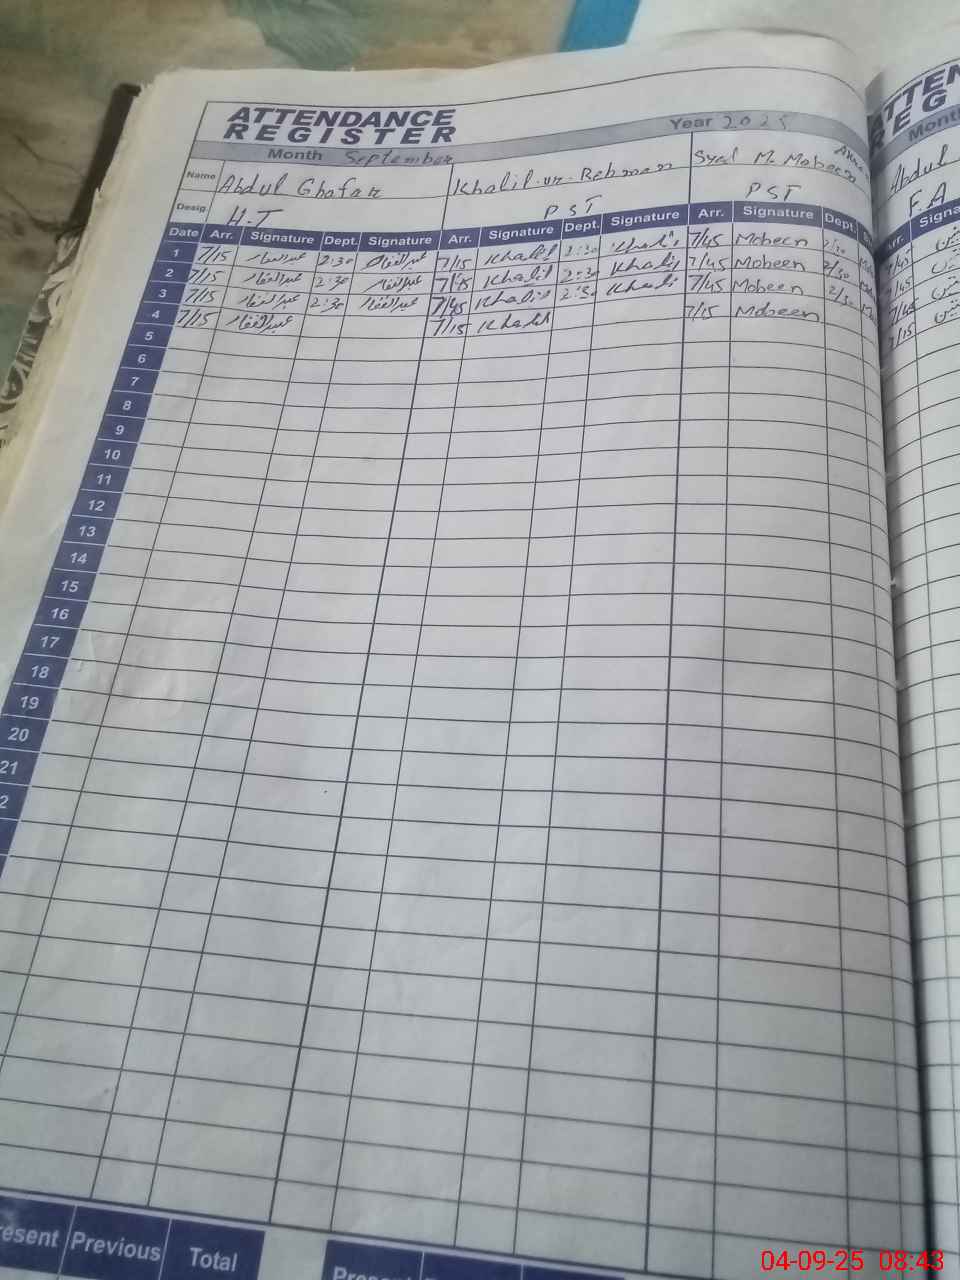 ATTENDANCE
REGISTER
Year 2025
Month September
Name Abdul Ghafar Khalil-ur-Rehman Syed M. Mobeen
Desig. H.T PST PST
Date Arr. Signature Dept. Signature Arr. Signature Dept. Signature Arr. Signature Dept.
1 7/15 عبدالغفار 2:30 عبدالغفار 7/15 Khalil 2:30 Khalil 7/45 Mobeen 2/30
2 7/15 عبدالغفار 2:30 عبدالغفار 7/45 Khalil 2:30 Khalil 7/45 Mobeen 2/30
3 7/15 عبدالغفار 2:30 عبدالغفار 7/45 Khalil 2:30 Khalil 7/45 Mobeen 2/30
4 7/15 عبدالغفار 7/15 Khalil 7/15 Mobeen
5
6
7
8
9
10
11
12
13
14
15
16
17
18
19
20
21
2
resent Previous Total
Present
Month
Abdul
F.A
Arr. Signa
7/45
7/45
7/45
7/15
04-09-25 08:43